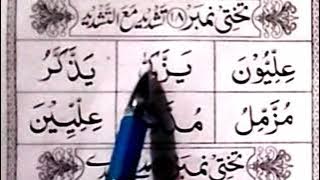 تختی نمبر (۱۸) تشدید مَعَ التشدید
عِلِّيُّوْنَ يَذَّكَّرُ
مُزَّمِّلُ عِلِّيِّيْنَ
تختی نمبر